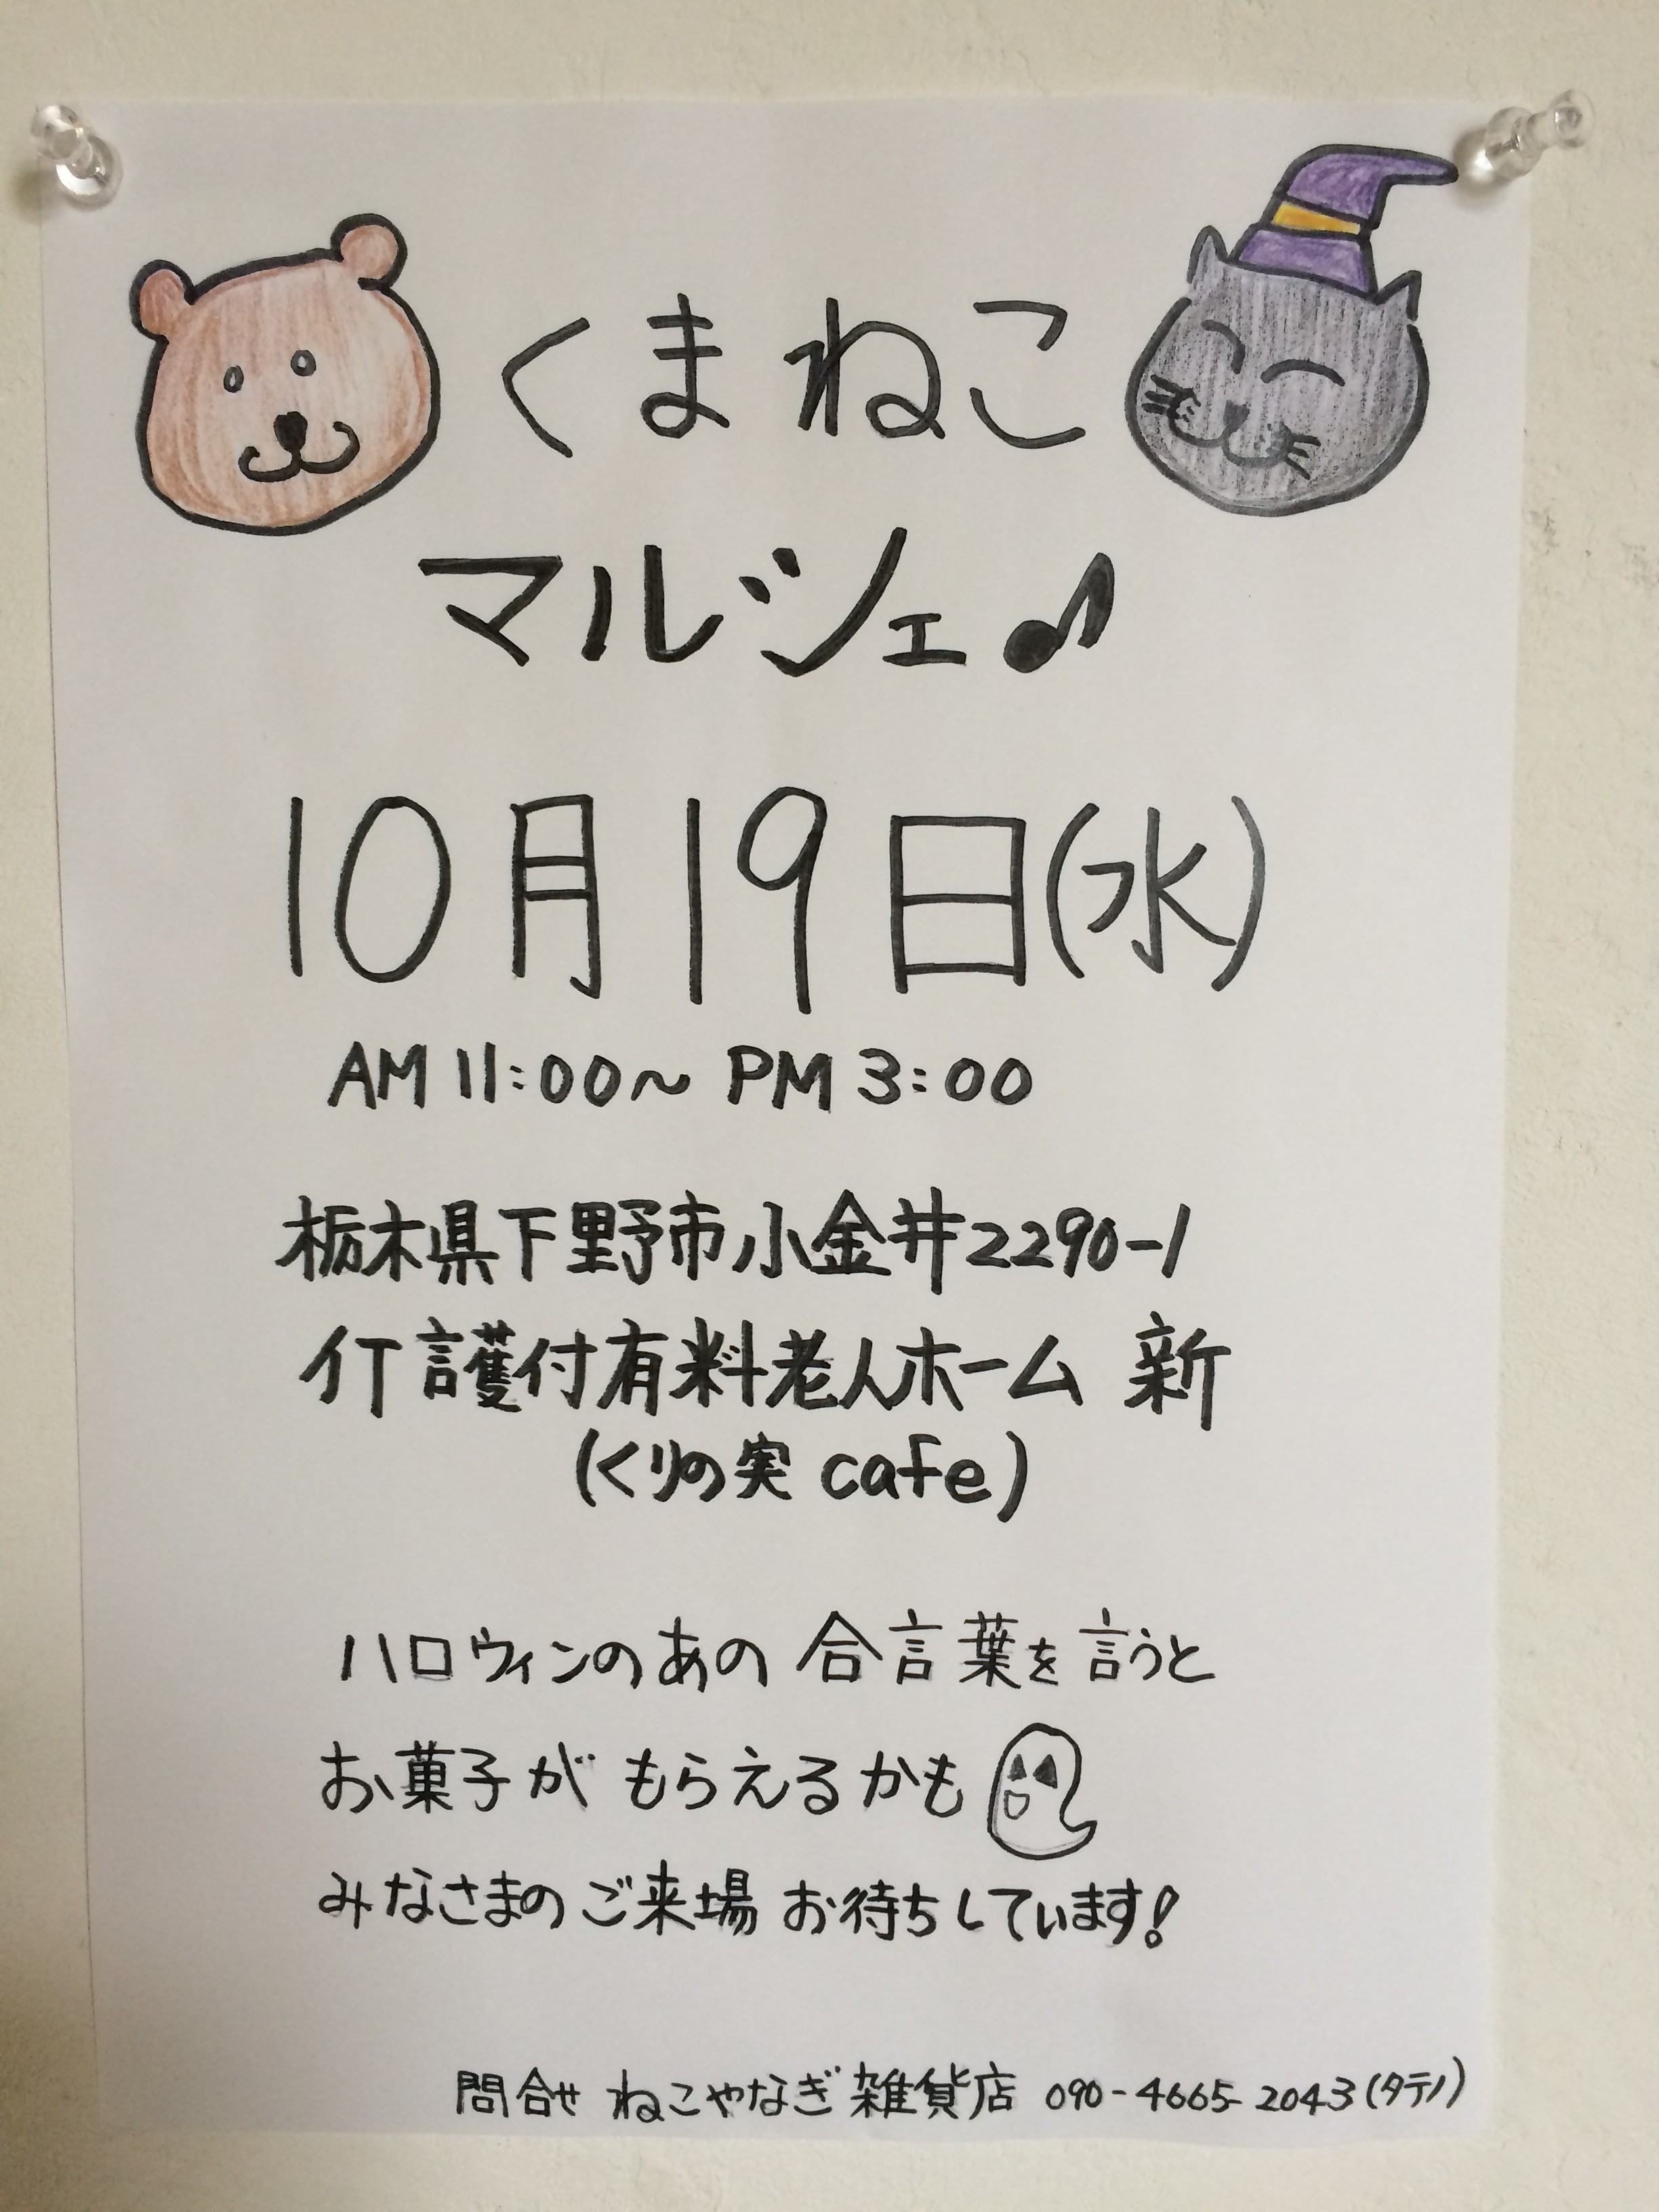 くまねこ
マルシェ♪
10月19日(水)
AM 11:00～PM 3:00
栃木県下野市小金井2290-1
介護付有料老人ホーム 新
(くりの実 cafe)
ハロウィンのあの合言葉を言うと
お菓子がもらえるかも
みなさまのご来場お待ちしています!
問合せ ねこやなぎ雑貨店 090-4665-2043(タテノ)